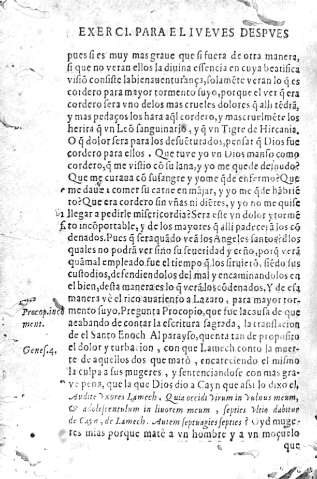 EXERCI. PARA EL IVEVES DESPVES
pues si es muy mas graue que si fuera de otra manera,
si que no veran ellos la diuina essencia en cuya beatifica
visiō consiste la bienauenturāça, solamēte veran lo q̄ es
cordero para mayor tormento suyo, porque el ver q̄ era
cordero sera vno delos mas crueles dolores q̄ alli tēdrā,
y mas pedaços los hara aq̄l cordero, y mas cruelmēte los
herira q̄ vn Leō sanguinario, y q̄ vn Tigre de Hircania.
O q̄ dolor sera para los desuēturados, pensar q̄ Dios fue
cordero para ellos. Que tuve yo vn Dios manso como
cordero, q̄ me vistio cō su lana, y yo me quede desnudo?
Que me curaua cō su sangre y yo me q̄de enfermo? Que
me daua a comer su carne en mājar, y yo me q̄de hābriē
to? Que era cordero sin vñas ni diētes, y yo no me quise
llegar a pedirle misericordia? Sera este vn dolor y tormē
to incōportable, y de los mayores q̄ alli padecerā los cō
denados. Pues q̄ sera quādo veā los Angeles santos? a los
quales no podrā ver sino su seueridad y ceño, porq̄ verā
quā mal empleado fue el tiempo q̄ los siruierō, siēdo sus
custodios, defendiendolos del mal y encaminandolos en
el bien, desta manera es lo q̄ verā los cōdenados. Y de esta
manera vè el rico auariento a Lazaro, para mayor tor-
mento suyo. Pregunta Procopio, que fue la causa de que
acabando de contar la escritura sagrada, la translacion
de el Santo Enoch Al parayso, cuenta tan de proposito
el dolor y turbacion, con que Lamech conto la muer-
te de aquellos dos que matò, encareciendo el mismo
la culpa a sus mugeres, y sentenciandose con mas gra-
ue pena, que la que Dios dio a Cayn que assi lo dixo el,
Audite Vxores Lamech. Quia occidi Virum in Vulnus meum,
& adolescentulum in liuorem meum, septies Vltio dabitur
de Cayn, de Lamech. Autem septuagies septies? Oyd muge-
res mias porque matè a vn hombre y a vn moçuelo
que
Procop. in co
ment.
Genes. 4.